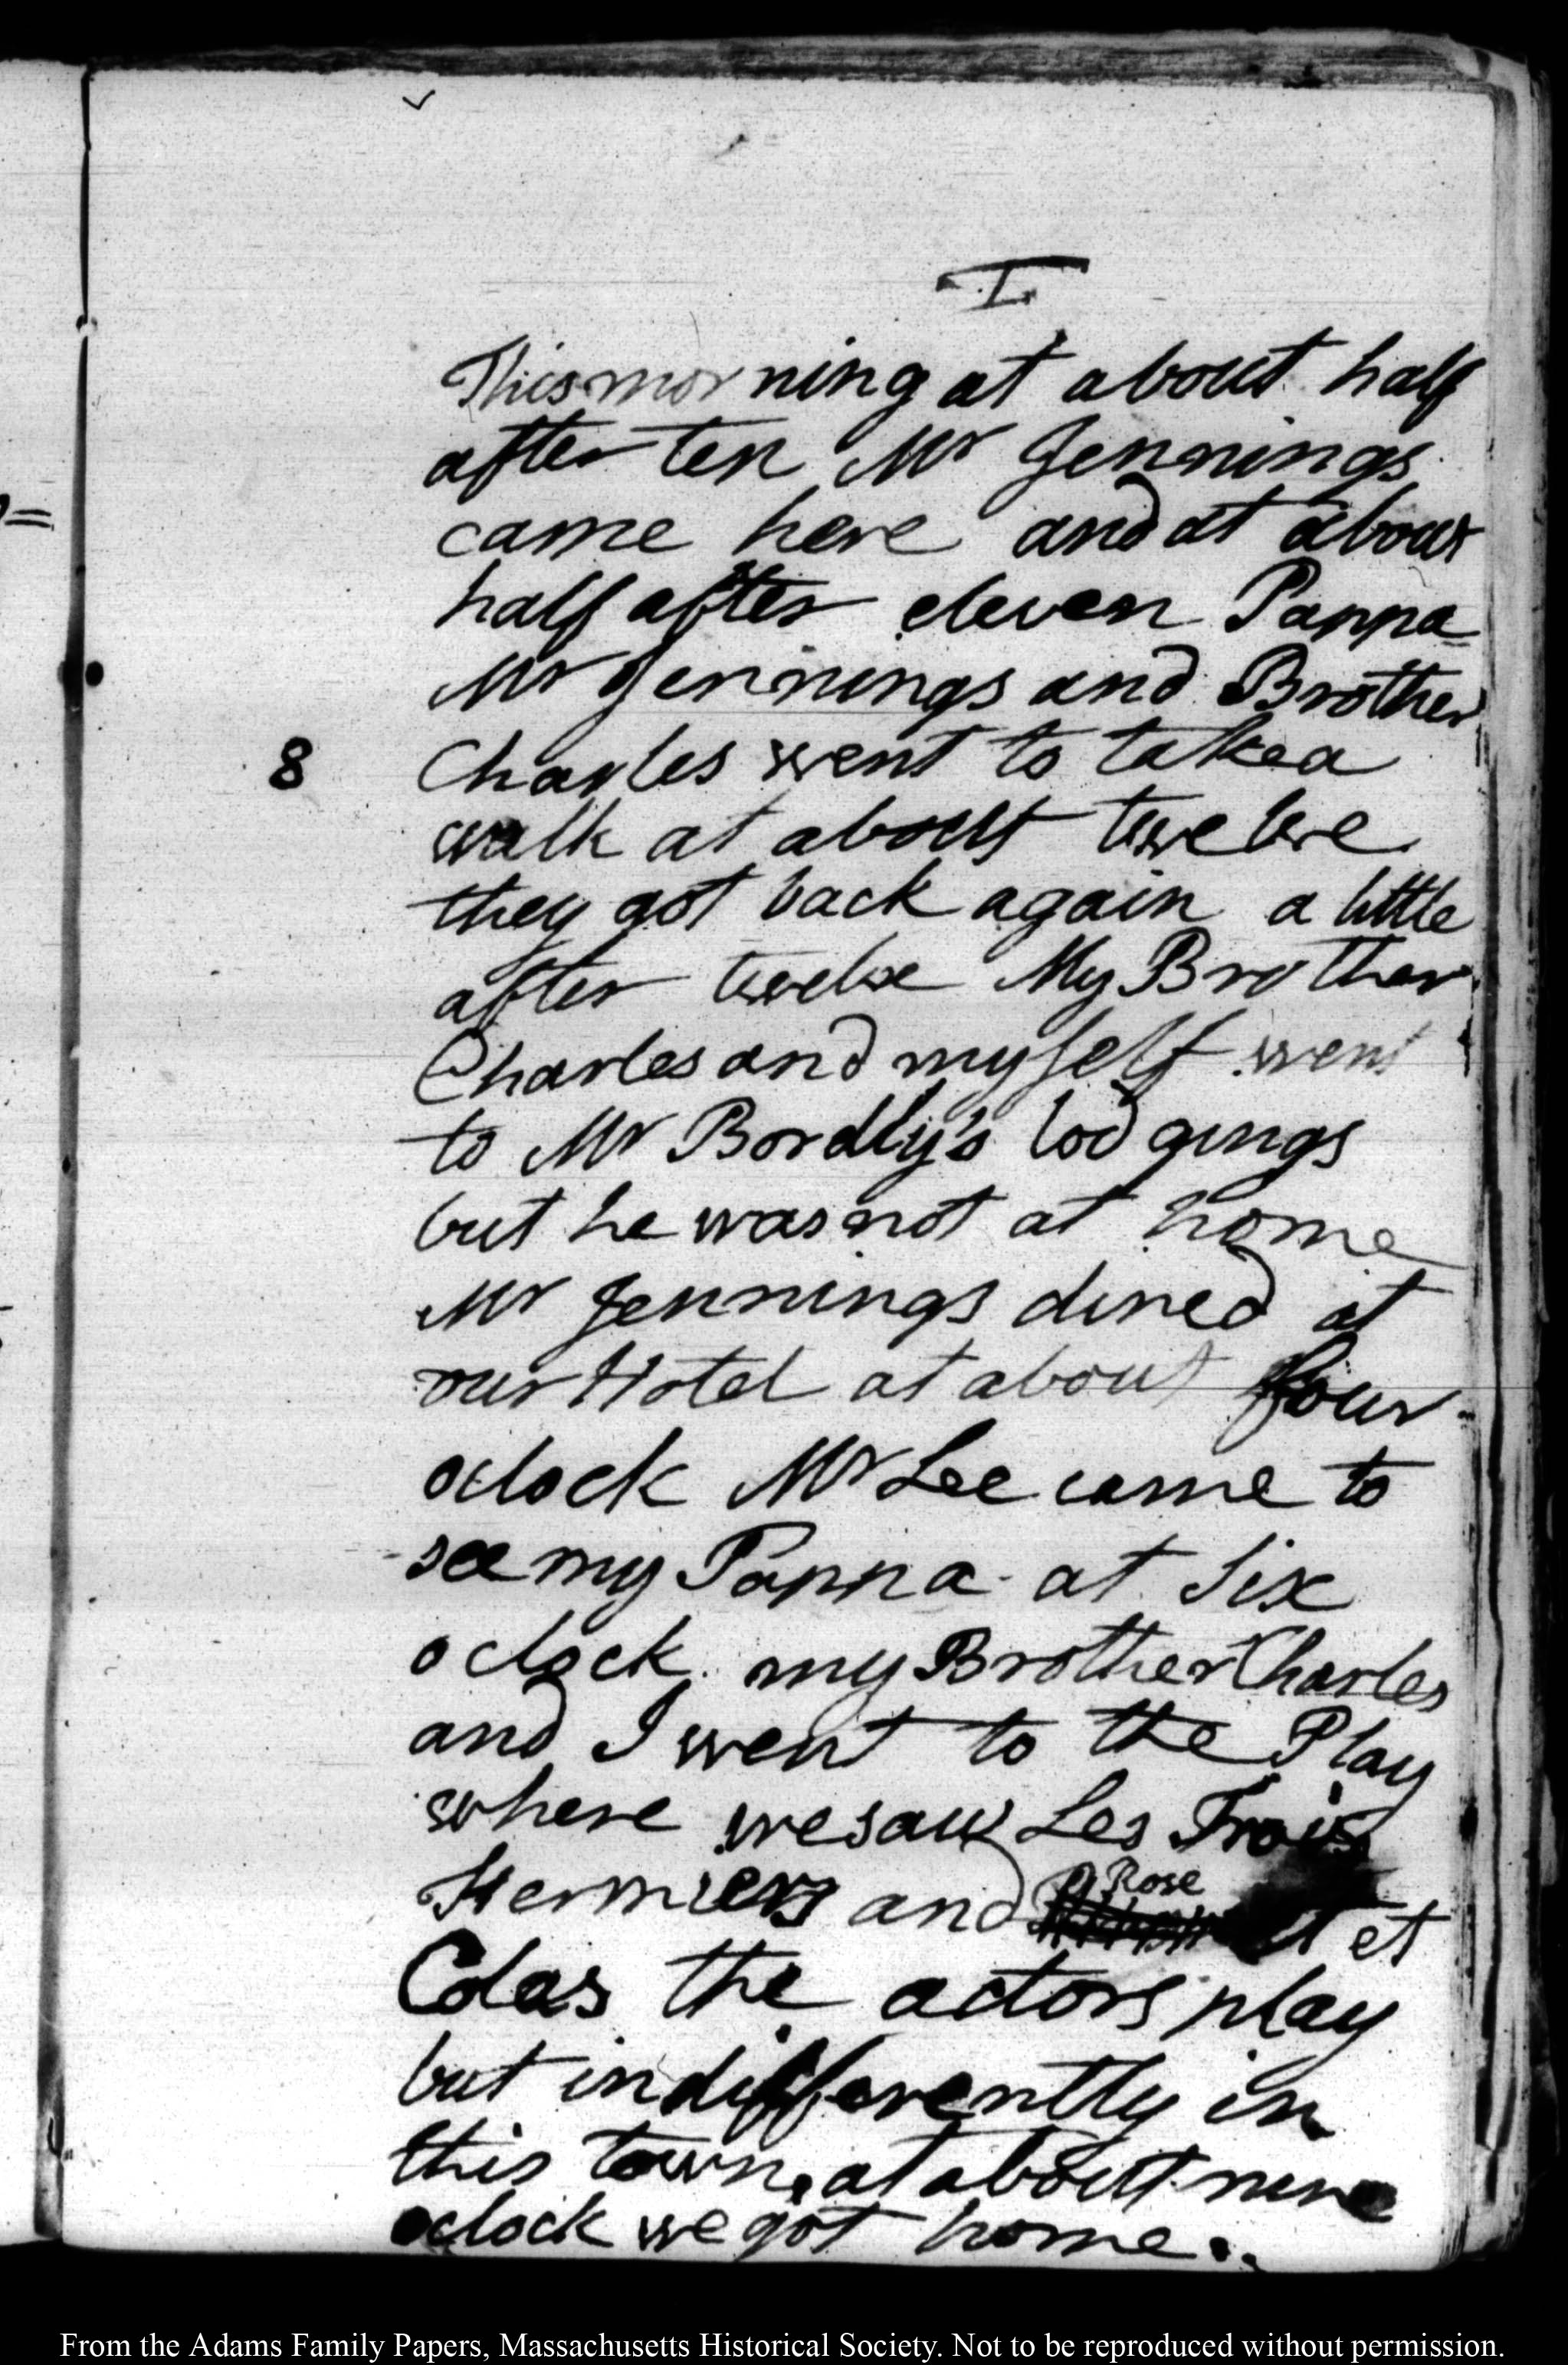 I
This morning at about half
after ten Mr Jennings
came here and at about
half after eleven Pappa
Mr Jennings and Brother
8 Charles went to take a
walk at about twelve
they got back again a little
after twelve My Brother
Charles and myself went
to Mr Bordly's lodgings
but he was not at home
Mr Jennings dined at
our Hotel at about four
oclock Mr Lee came to
see my Pappa at Six
oclock my Brother Charles
and I went to the Play
where we saw Les Trois
Fermiers and Rose et
Colas the actors play
but indifferently in
this town, at about nine
oclock we got home..
From the Adams Family Papers, Massachusetts Historical Society. Not to be reproduced without permission.